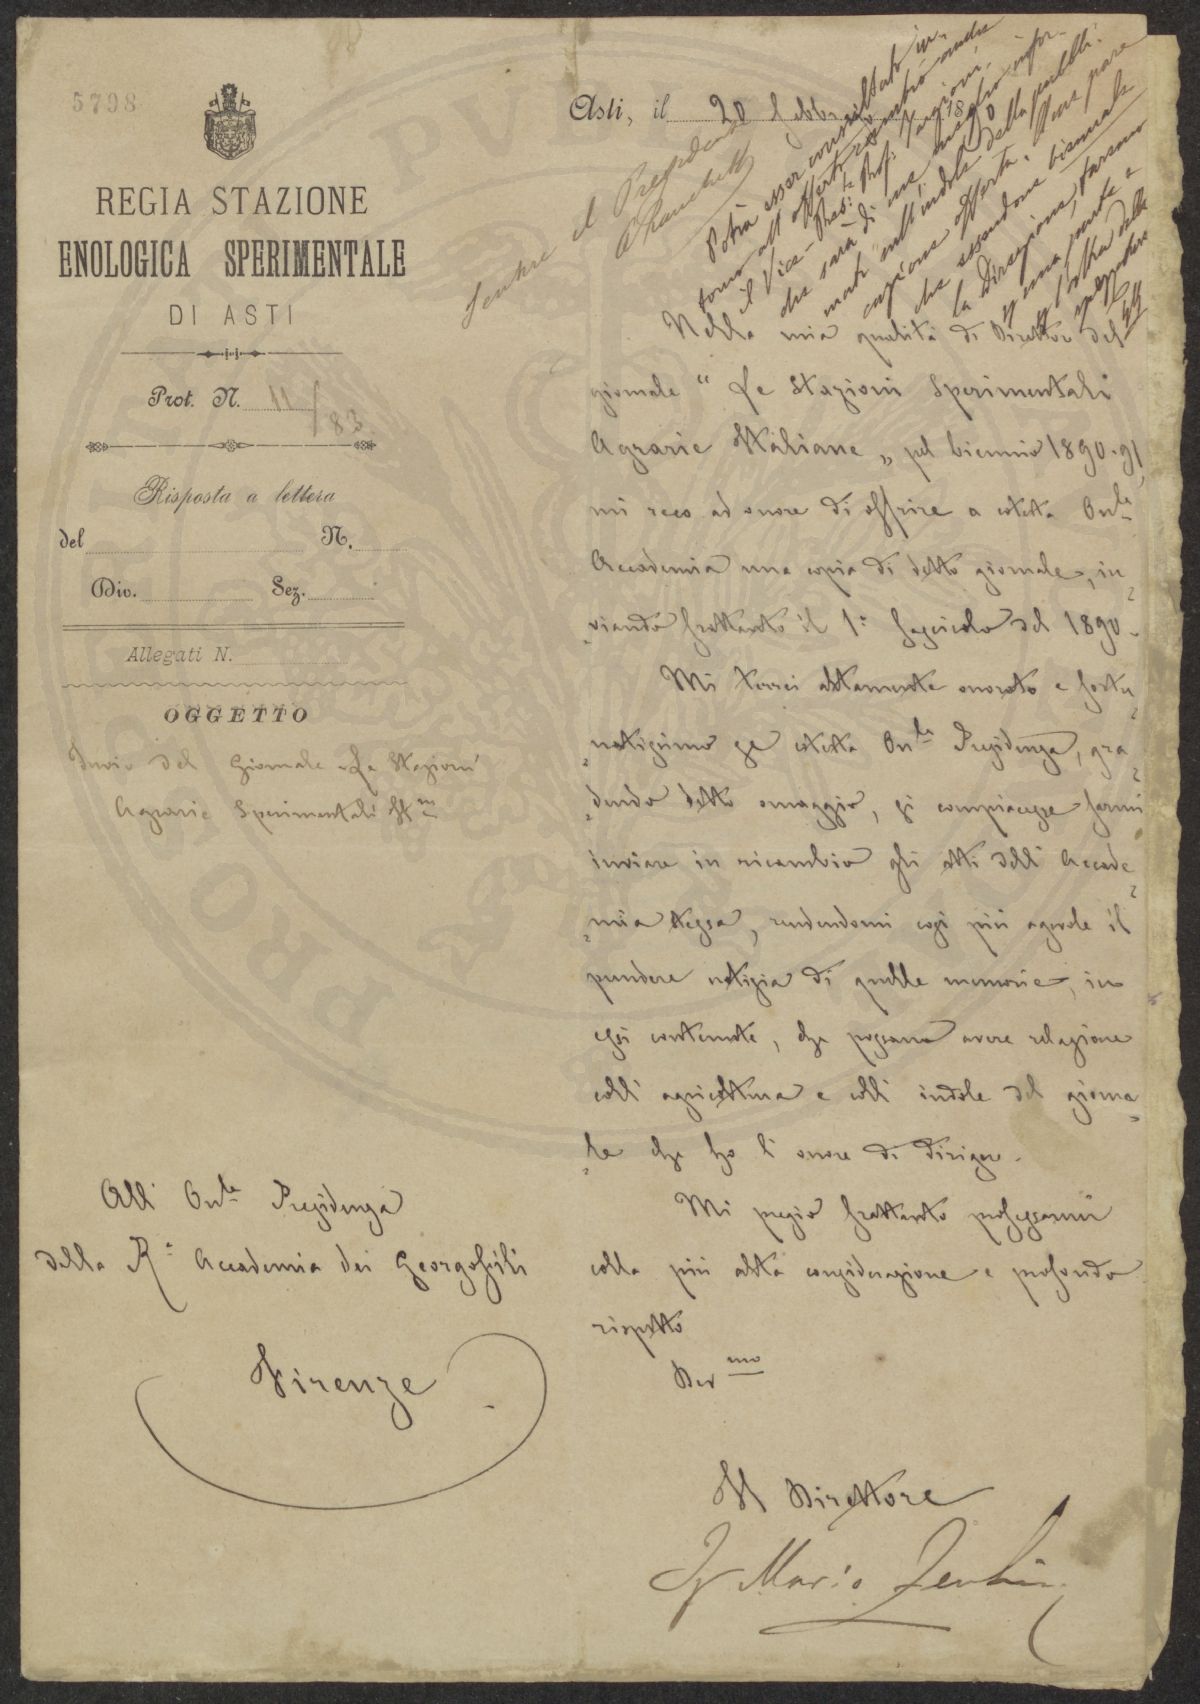 5798
REGIA STAZIONE
ENOLOGICA SPERIMENTALE
DI ASTI
Prot. N. 11/83
Risposta a lettera
del N.
Div. Sez.
Allegati N.
OGGETTO
Invio del Giornale Le Stazioni
Agrarie Sperimentali It ne
All' On.le Presidenza
della R.a Accademia dei Georgofili
Firenze
Asti, il 20 Febbr 1890
Sentire il Presidente
Potrà esser consultato in-
torno all' offerto cambio anche
il Vice-Presid.te Prof. Targioni,
che sarà di me meglio infor-
mato sull' indole della pubbli-
cazione offerta. A me pare
che essendone bismale
la direzione, saremo
Nella mia qualità di Direttore del
giornale "Le Stazioni Sperimentali
Agrarie Italiane" pel biennio 1890-91
mi reco ad onore di offrire a cotesta On.le
Accademia una copia di detto giornale, in-
viando frattanto il 1° fascicolo del 1890.
Mi terrei altamente onorato e fortu-
natissimo se cotesta On.le Presidenza, gra-
dendo detto omaggio, si compiacesse farmi
inviare in ricambio gli atti dell' Accade-
mia stessa, rendendomi così più agevole il
prendere notizia di quelle memorie, in
essi contenute, che possano avere relazione
coll' agricoltura e coll' indole del giorna-
le che ho l' onore di dirigere.
Mi pregio frattanto professarmi
colla più alta considerazione e profondo
rispetto
Dev.mo
Il Direttore
Mario Zecchini